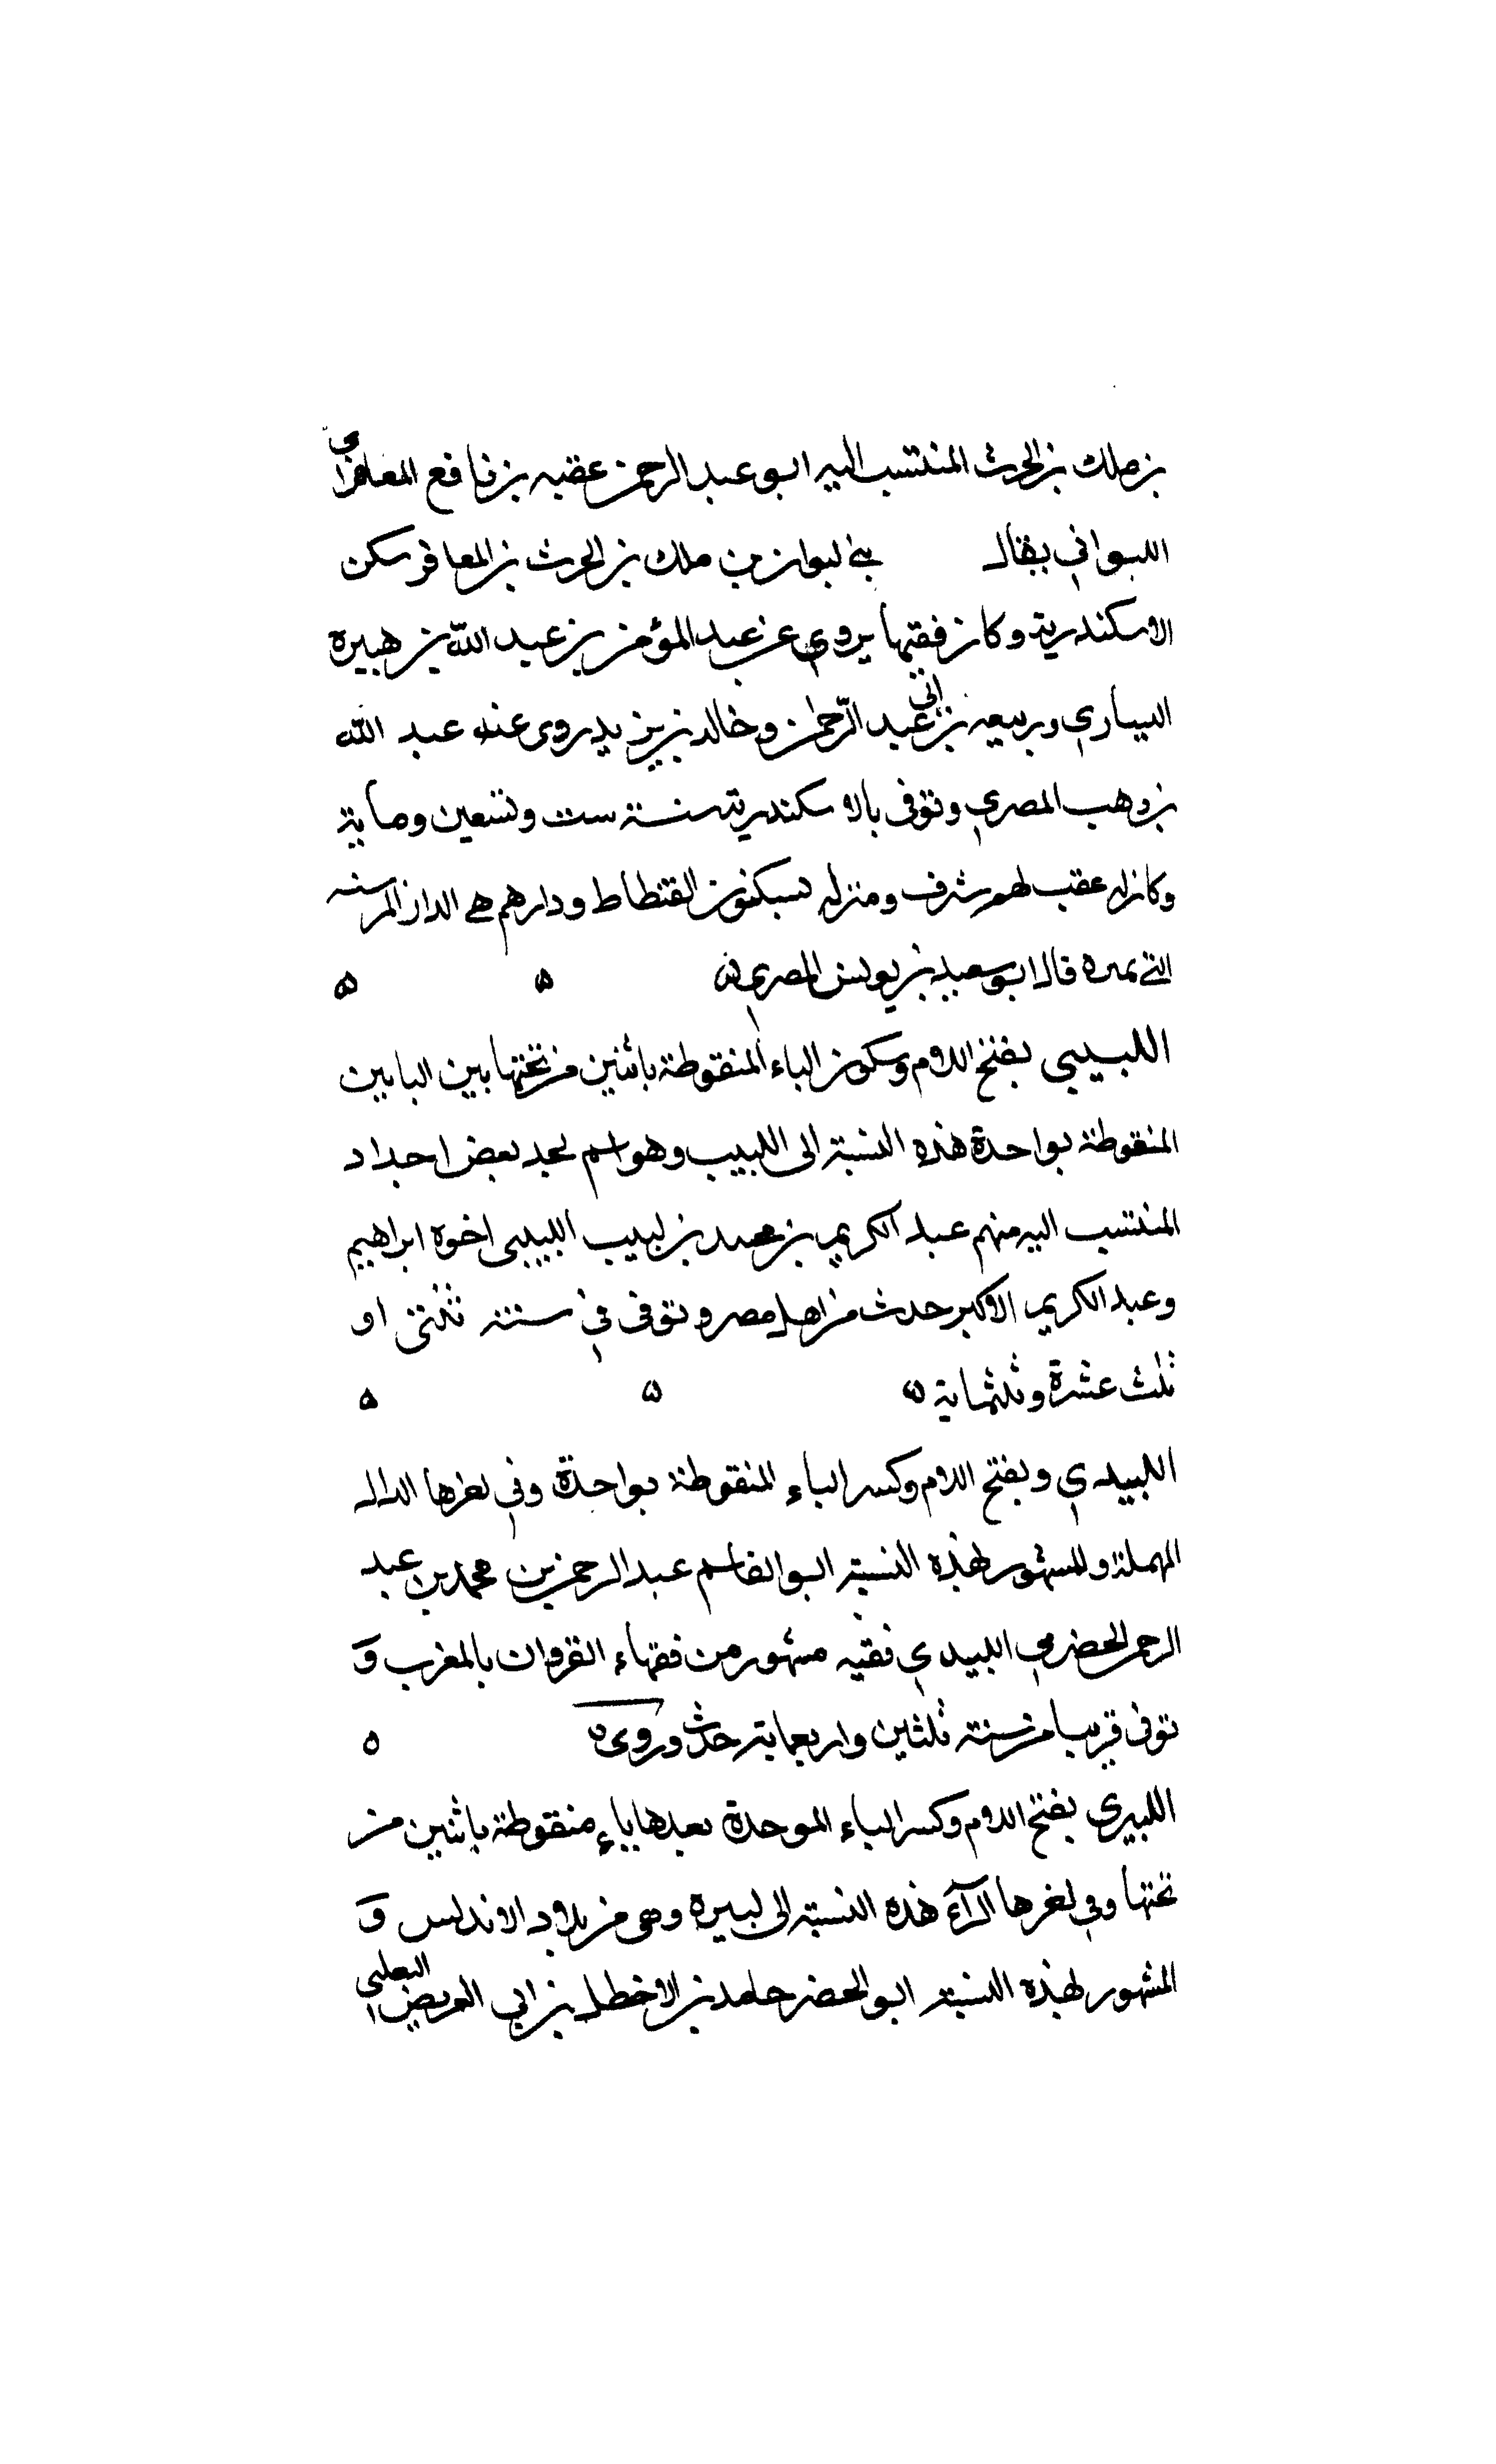 بن ملك بن الحرث المنتسب اليه ابو عبد الرحمن عقبه بن نافع المعافرى
اللبوانى يقال بنى لبوان بن ملك بن الحرث بن المعافر سكن
الاسكندرية وكان فقيها يروي عن عبد المؤمن بن عبد الله بن هبيره
السباري وربيعه بن ابى عبد الرحمن وخالد بن يزيد روى عنه عبد الله
بن وهب المصري وتوفى بالاسكندرية سنة ست وتسعين وماية
وكان له عقب لهم شرف ومنزله يسكنون القسطاط ودارهم هى الدار
التى قال ابو سعيد بن يونس المصري ه ه ه
اللبيبى بفتح اللام وسكون الياء المنقوطة باثنين من تحتها بين البايين
المنقوطة بواحدة هذه النسبة الى اللبيب وهو اسم لجد بعض اجداد
المنتسب اليه منهم عبد الكريم بن محمد بن لبيب اللبيبى اخوه ابراهيم
وعبد الكريم الاكبر حدث من اهل مصر وتوفى فى سنة ثنتى او
ثلث عشرة وثلثماية ه ه ه
اللبيدي وبفتح اللام وكسر الباء المنقوطة بواحدة وفى اخرها الدال
المهملة والمشهور بهذه النسبة ابو القاسم عبد الرحمن بن محمد بن عبد
الرحمن الحضرمي اللبيدي فقيه مشهور من فقهاء القروان بالمغرب و
توفى قريبا من سنة ثلثين واربعماية حدث وروى ه ه
اللبيرى بفتح اللام وكسر الباء الموحدة بعدها ياء منقوطة باثنين من
تحتها وفي اخرها الراء هذه النسبة الى لبيرة وهى من بلاد الاندلس و
المشهور بهذه النسبة ابو الخضر حامد بن الاخطل بن ابي العريض التغلبي